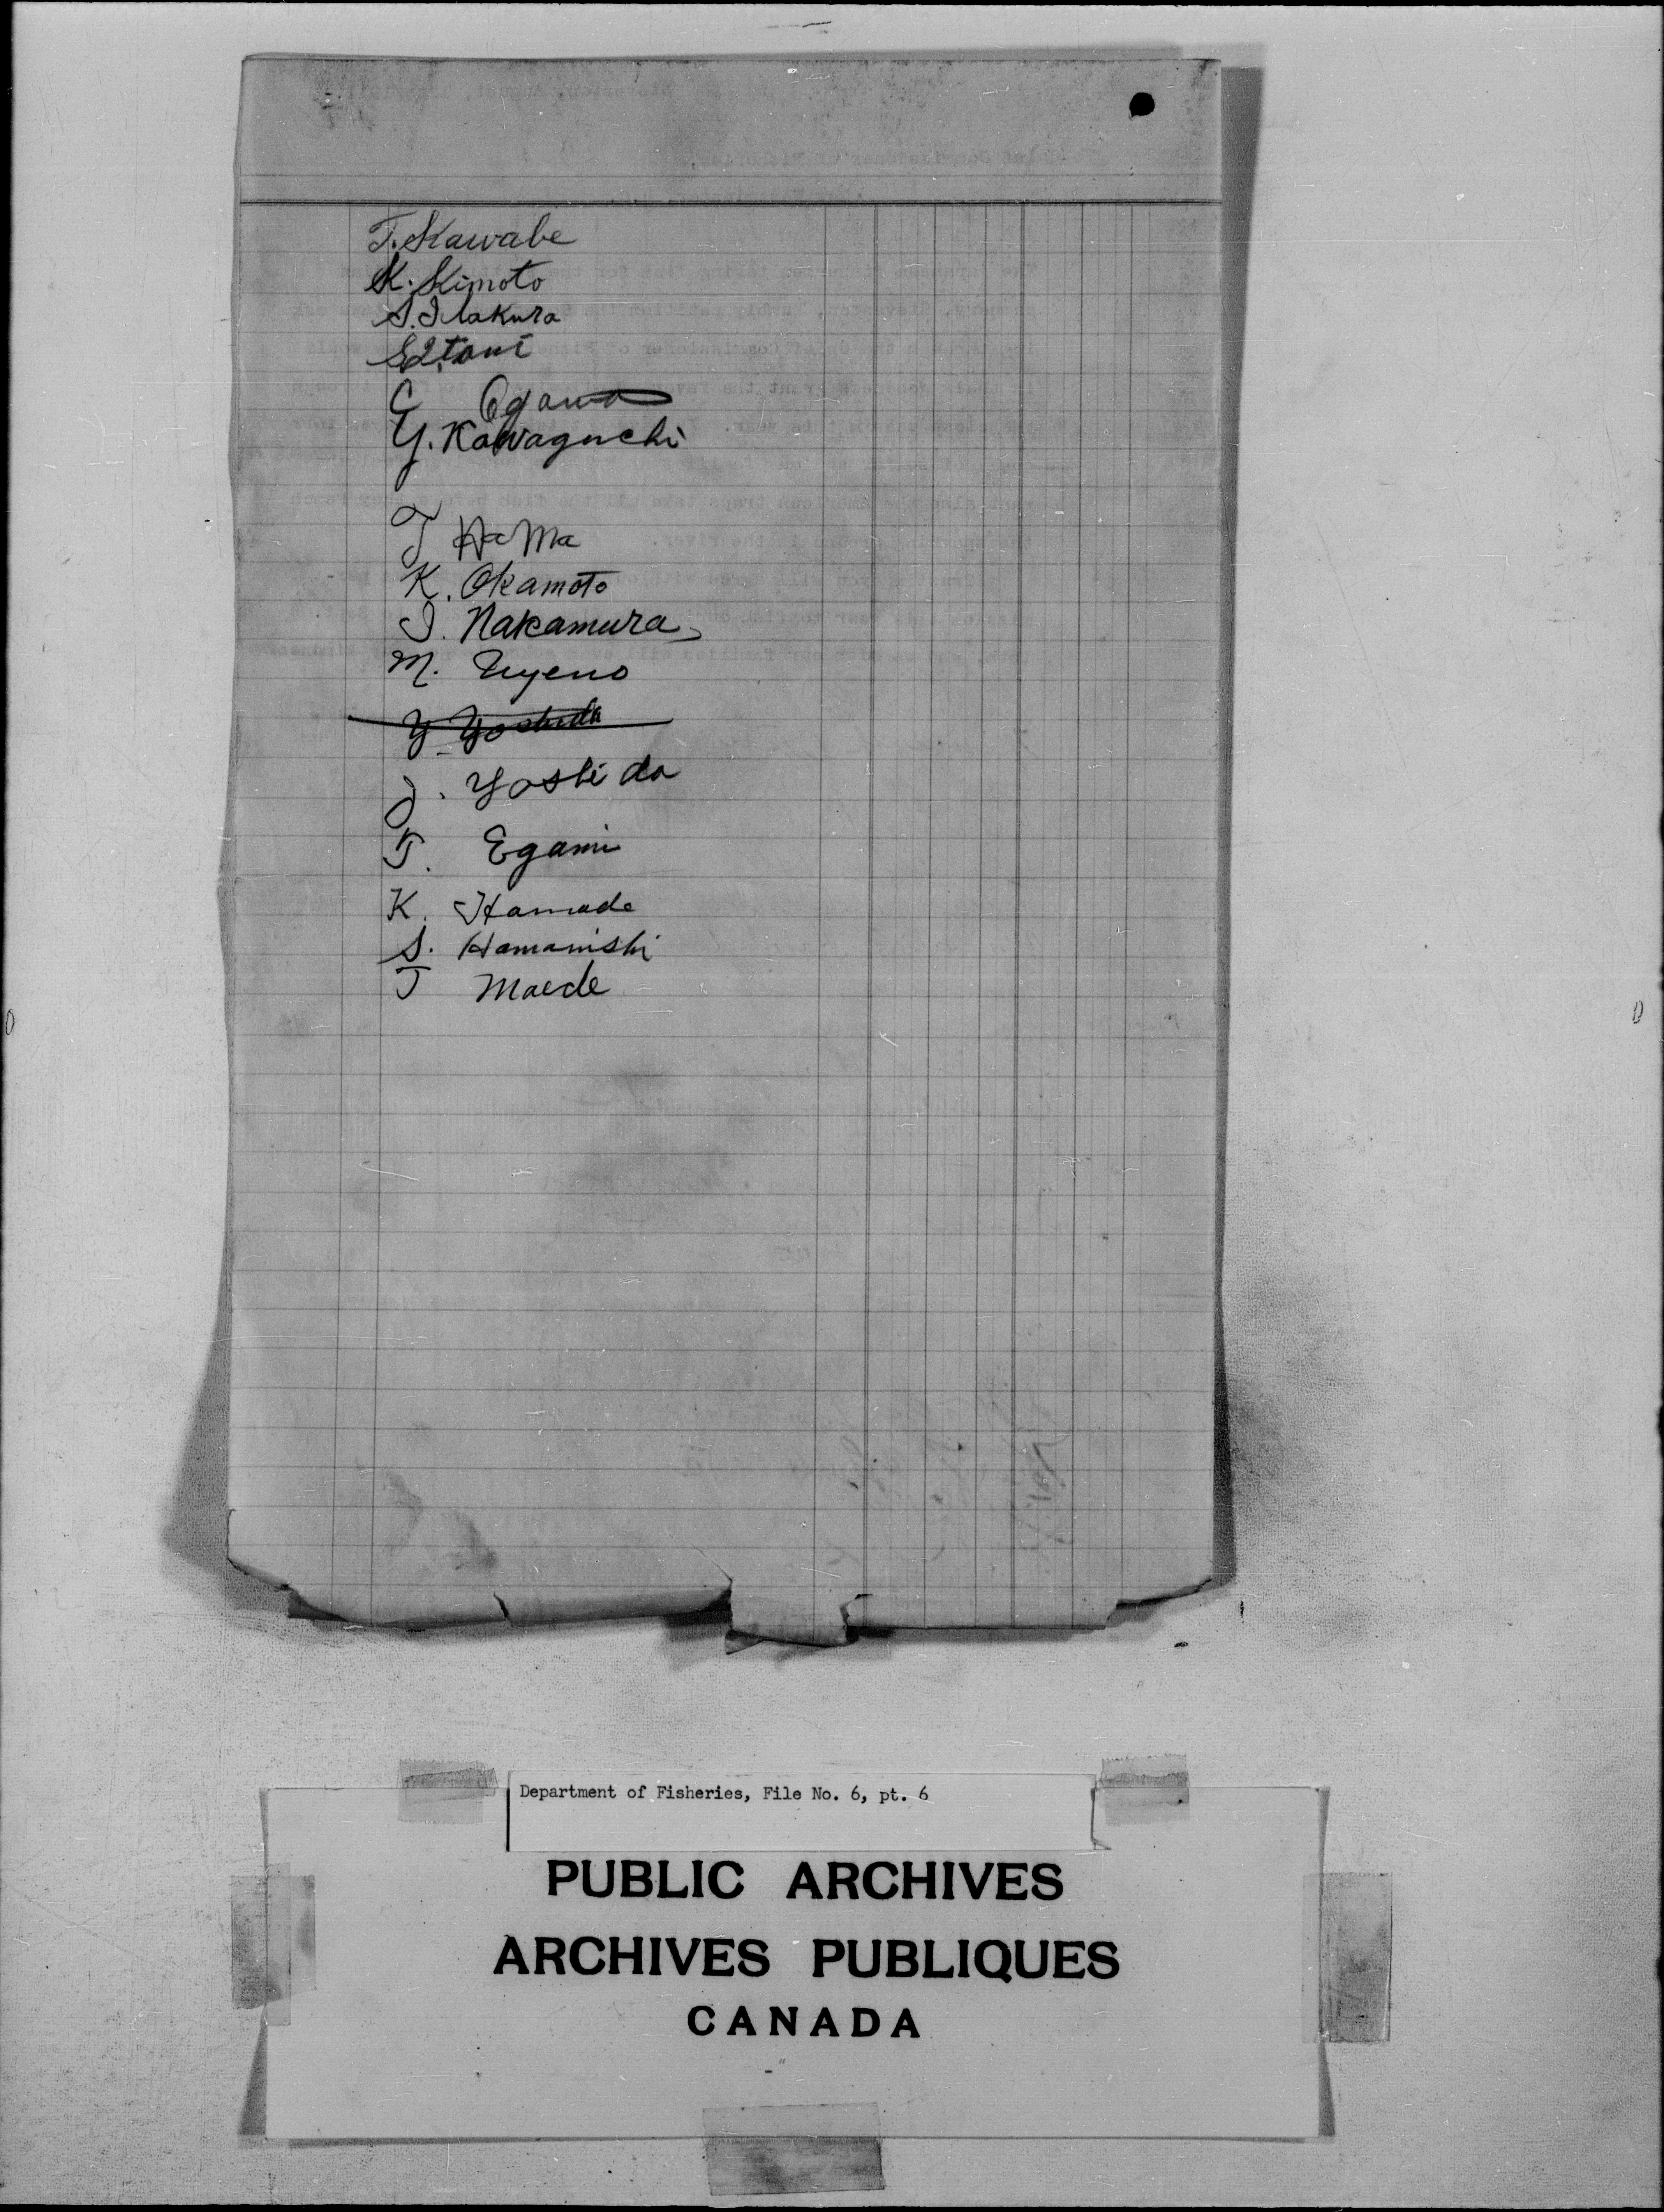 T. Kawabe
K. Kimoto
S. Itakura
S. Itani
C Ogawa
Y. Kawaguchi
T HaMa
K. Okamoto
I. Nakamura
M. Uyeno
Y Yoshida
J. Yoshida
T. Egami
K. Hamade
S. Hamanishi
T Maede
Department of Fisheries, File No. 6, pt. 6
PUBLIC ARCHIVES
ARCHIVES PUBLIQUES
CANADA